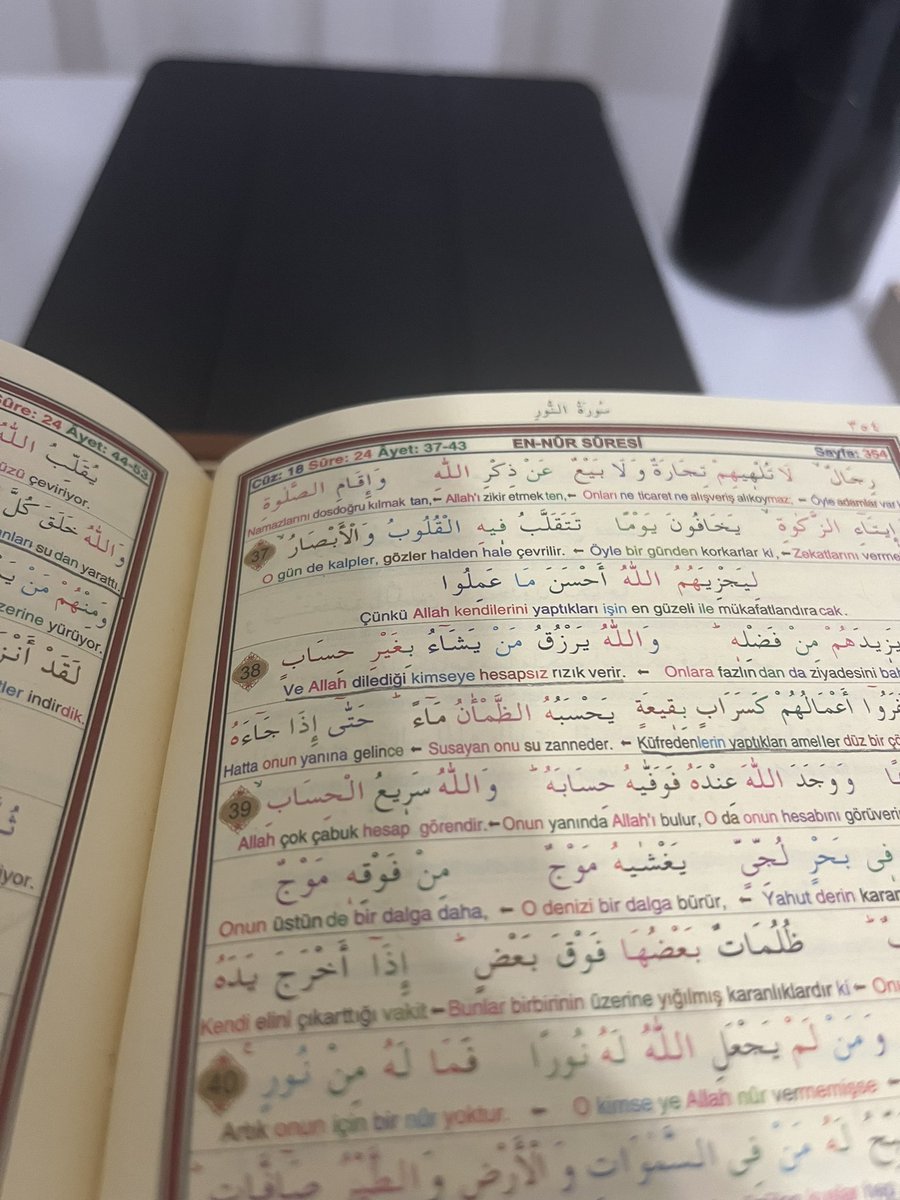 Sûre: 24 Âyet: 44-53
يُقَلِّبُ اللّٰهُ
çeviriyor.
وَاللّٰهُ خَلَقَ كُلَّ
sudan yarattı.
وَمِنْهُمْ مَنْ
üzerine yürüyor.
لَقَدْ
indirdik.
سُورَةُ النُّورِ
٣٥٤
Cüz: 18 Sûre: 24 Âyet: 37-43
EN-NÛR SÛRESİ
Sayfa: 354
رِجَالٌ لَا تُلْهِيهِمْ تِجَارَةٌ وَلَا بَيْعٌ عَنْ ذِكْرِ اللّٰهِ وَإِقَامِ الصَّلٰوةِ
Namazlarını dosdoğru kılmak tan,← Allah'ı zikir etmek ten,← Onları ne ticaret ne alışveriş alıkoymaz, ← Öyle adamlar var
إِيتَاءِ الزَّكٰوةِ يَخَافُونَ يَوْمًا تَتَقَلَّبُ فِيهِ الْقُلُوبُ وَالْأَبْصَارُ 37
O gün de kalpler, gözler halden hale çevrilir. ← Öyle bir günden korkarlar ki, ← Zekatlarını
لِيَجْزِيَهُمُ اللّٰهُ أَحْسَنَ مَا عَمِلُوا
Çünkü Allah kendilerini yaptıkları işin en güzeli ile mükafatlandıracak.
يَزِيدَهُمْ مِنْ فَضْلِهِ وَاللّٰهُ يَرْزُقُ مَنْ يَشَاءُ بِغَيْرِ حِسَابٍ 38
Ve Allah dilediği kimseye hesapsız rızık verir. ← Onlara fazlın dan da ziyadesini
أَعْمَالُهُمْ كَسَرَابٍ بِقِيعَةٍ يَحْسَبُهُ الظَّمْاٰنُ مَاءً حَتّٰى إِذَا جَاءَهُ
Hatta onun yanına gelince ← Susayan onu su zanneder. ← Küfredenlerin yaptıkları ameller düz bir
وَوَجَدَ اللّٰهَ عِنْدَهُ فَوَفّٰيهُ حِسَابَهُ وَاللّٰهُ سَرِيعُ الْحِسَابِ 39
Allah çok çabuk hesap görendir.← Onun yanında Allah'ı bulur, O da onun hesabını
فِى بَحْرٍ لُجِّىٍّ يَغْشٰيهُ مَوْجٌ مِنْ فَوْقِهِ مَوْجٌ
Onun üstün de bir dalga daha, ← O denizi bir dalga bürür, ← Yahut derin
ظُلُمَاتٌ بَعْضُهَا فَوْقَ بَعْضٍ إِذَا أَخْرَجَ يَدَهُ
Kendi elini çıkarttığı vakit ← Bunlar birbirinin üzerine yığılmış karanlıklardır ki ←
وَمَنْ لَمْ يَجْعَلِ اللّٰهُ لَهُ نُورًا فَمَا لَهُ مِنْ نُورٍ 40
Artık onun için bir nûr yoktur. ← O kimse ye Allah nûr vermemişse ←
لَهُ مَنْ فِى السَّمٰوَاتِ وَالْأَرْضِ وَالطَّيْرُ صَافَّاتٍ